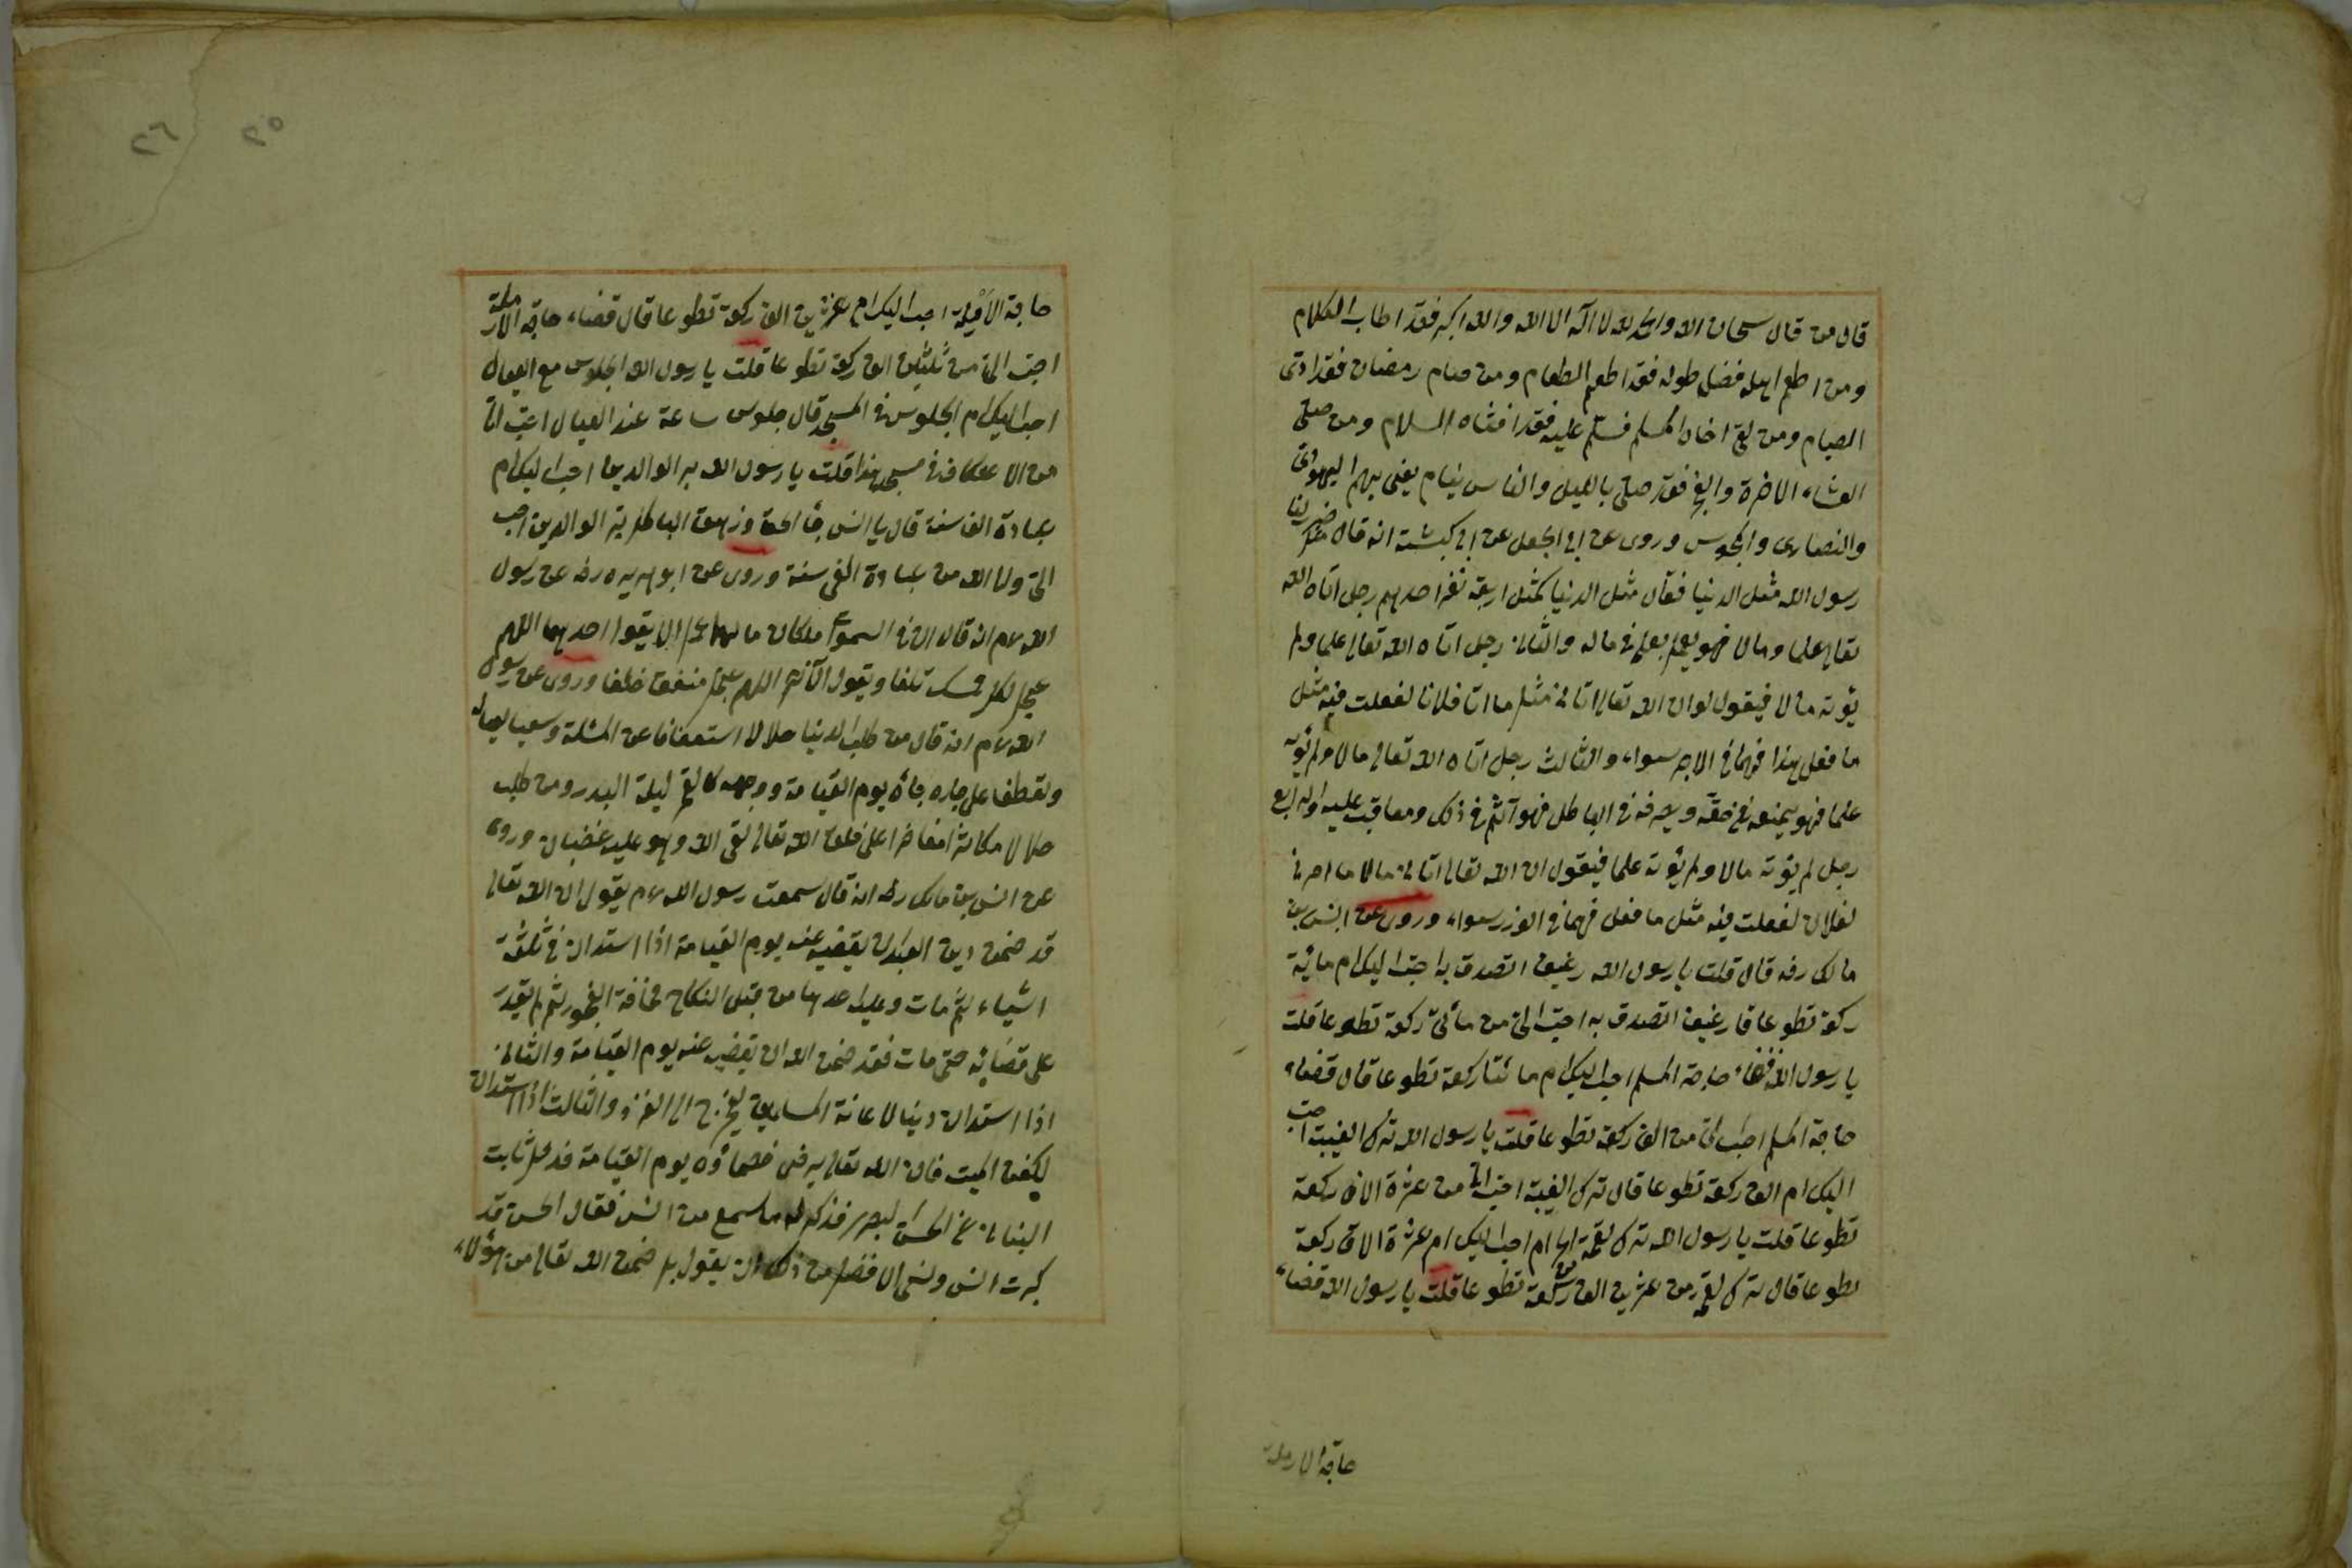 قال من قال سبحان الله والحمد لله لا اله الا الله والله اكبر فقد اطاب الكلام
ومن اطعم اهله فضل طوله فقد اطعم الطعام ومن صام رمضان فقد ادى
الصيام ومن لقى اخاه المسلم فسلم عليه فقد افشاء السلام ومن صلى
العشاء الاخرة والفجر فقد صلى بالليل والناس نيام يعنى بهم اليهودى
والنصارى والمجوس وروى عن ابى الجعل عن ابى كبشة انه قال ضرب لنا
رسول الله مثل الدنيا فقال مثل الدنيا كمثل اربعة نفر احدهم رجل اتاه الله
تعالى علما ومالا فهو يعمل بعلمه فى ماله والثانى رجل اتاه الله تعالى علما ولم
يؤته مالا فيقول لو ان الله تعالى اتانى مثل ما اتا فلانا لفعلت فيه مثل
ما فعل هذا فهما فى الاجر سواء والثالث رجل اتاه الله تعالى مالا ولم يؤته
علما فهو يمنعه عن حقه ويصرفه فى الباطل فهو آثم فى ذلك ومعاقب عليه والرابع
رجل لم يؤته مالا ولم يؤته علما فيقول ان الله تعالى اتانى مالا
لفلان لفعلت فيه مثل ما فعل فهما فى الوزر سواء وروى عن انس بن
مالك رضه قال قلت يا رسول الله رغيف اتصدق به احب اليك ام مائة
ركعة تطوعا قا رغيف اتصدق به احب الى من مأتى ركعة تطوعا قلت
يا رسول الله قضاء حاجة المسلم احب اليك ام مائتا ركعة تطوعا قال قضاء
حاجة المسلم احب الى من الف ركعة تطوعا قلت يا رسول الله ترك الغيبة احب
اليك ام الف ركعة تطوعا قال ترك الغيبة احب الى من عشرة الاف ركعة
تطوعا قلت يا رسول الله ترك لقمة الحرام احب اليك ام عشرة الاف ركعة
تطوعا قال ترك لقمة من عشرين الف ركعة تطوعا قلت يا رسول الله قضاء
حاجة الارملة
٢٥
٢٦
حاجة الارملة احب اليك ام عشرين الف ركعة تطوعا قال قضاء حاجة الارملة
احب الى من ثلثين الف ركعة تطوعا قلت يا رسول الله الجلوس مع العيال
احب اليك ام الجلوس فى المسجد قال جلوس ساعة عند العيال احب الى
من الاعتكاف فى مسجد هذا قلت يا رسول الله بر الوالدين احب اليك ام
عبادة الف سنة قال يا انس جاء الحق وزهق الباطل بر الوالدين احب
الى والى الله من عبادة الفى سنة وروى عن ابو هريره رضه عن رسول
الله عم انه قال ان فى السموات ملكان ما لهما عمل الا يقول احدهما اللهم
عجل لكل ممسك تلفا ويقول الآخر اللهم عجل منفق خلفا وروى عن رسول
الله عم انه قال من طلب الدنيا حلالا استعفافا عن المسئلة وسعيا لعياله
وتعطفا على جاره جاء يوم القيامة ووجهه كالقمر ليلة البدر ومن طلب
حلالا مكاثرا مفاخرا على خلق الله تعالى لقى الله وهو عليه غضبان وروى
عن انس بن مالك رضه انه قال سمعت رسول الله عم يقول ان الله تعالى
قد ضمن دين العبد ان يقضيه عنه يوم القيامة اذا استدان فى ثلثة
اشياء ثم مات وعليه احدها من قبل النكاح مخافة الفجور ثم لم يقدر
على قضائه حتى مات فقد ضمن الله ان يقضيه عنه يوم القيامة والثانى
اذا استدان دينا لاعانة المسلمين يخرج الى الغزو والثالث اذا استدان
لكفن الميت فان الله تعالى يرضى خصماؤه يوم القيامة فدخل ثابت
البنانى عن الحسن البصرى فذكر له ما سمع من انس فقال الحسن قد
كبرت انس ونسى الا فضل من ذلك ان يقول بل ضمن الله تعالى من هؤلاء